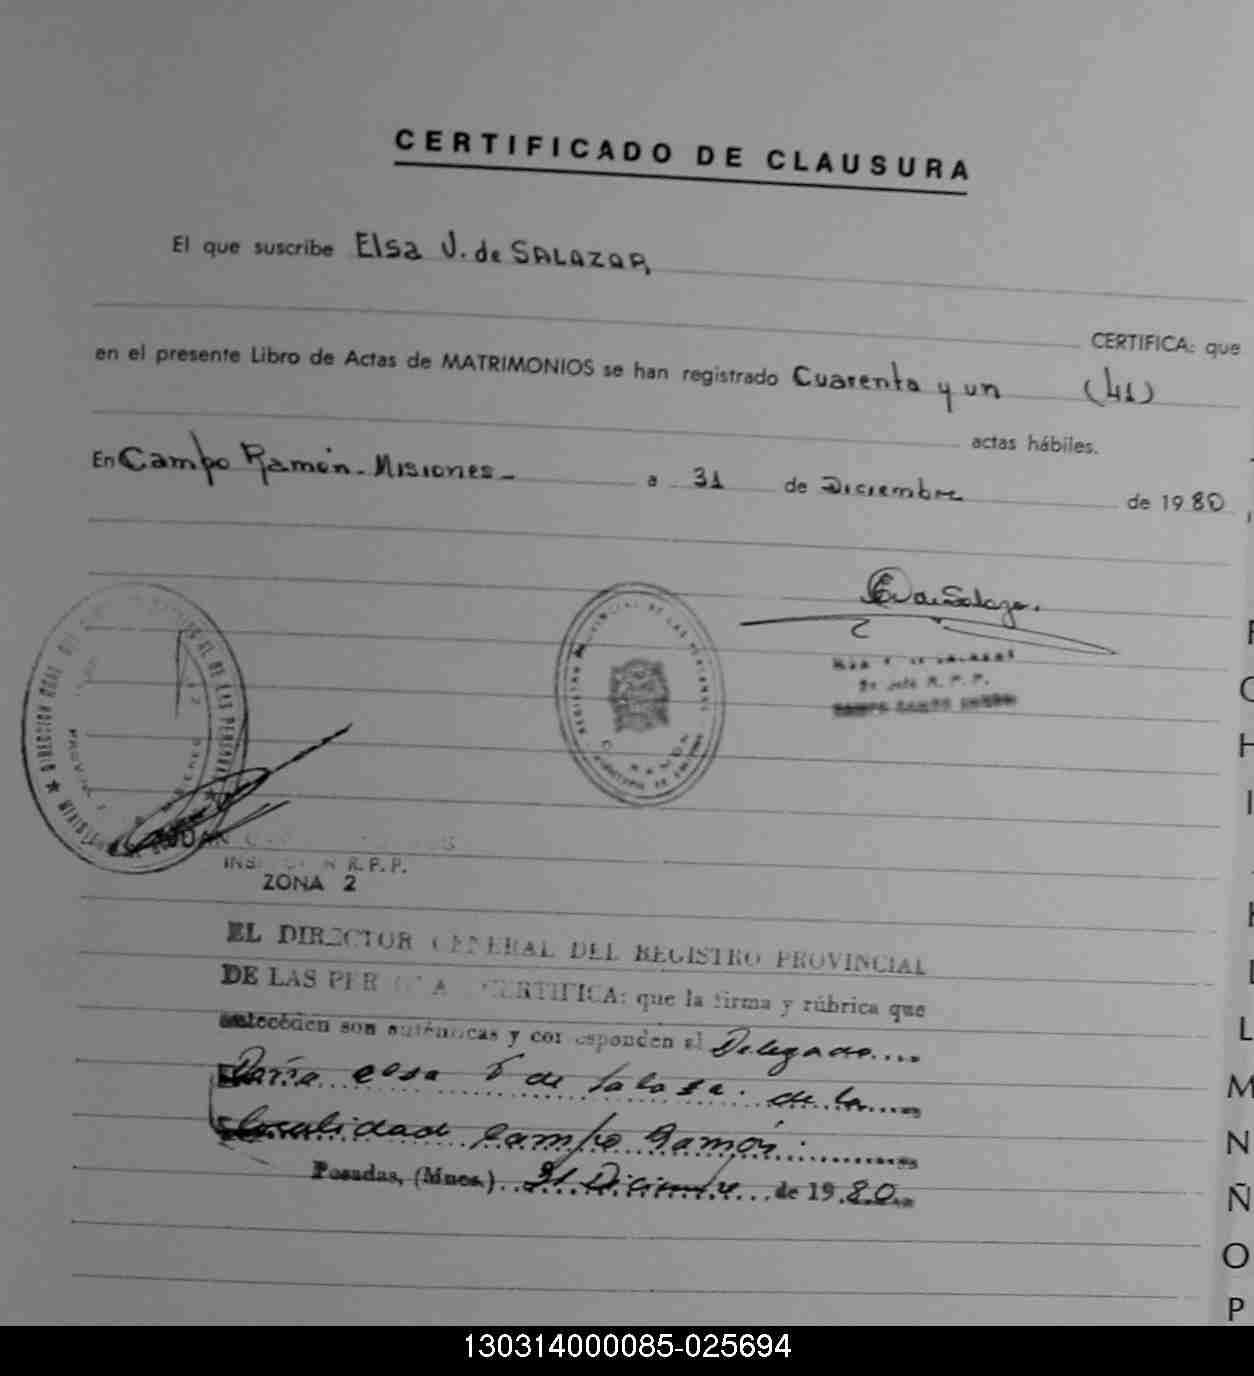 CERTIFICADO DE CLAUSURA
El que suscribe Elsa V. de SALAZAR,
CERTIFICA: que
en el presente Libro de Actas de MATRIMONIOS se han registrado Cuarenta y un (41)
actas hábiles.
En Campo Ramón - Misiones - a 31 de Diciembre de 1980
EVdeSalazar.
DIRECCION GRAL DE LAS PERSONAS
REGISTRO PROVINCIAL DE LAS PERSONAS
R. P. P.
R. P. P.
ZONA 2
EL DIRECTOR GENERAL DEL REGISTRO PROVINCIAL
DE LAS PERSONAS CERTIFICA: que la firma y rúbrica que
anteceden son auténticas y corresponden al Delegado....
María elsa V de Salazar. de la
localidad Campo Ramón.
Posadas, (Mnes.) 31 Diciembre de 1980
F
G
H
I
K
L
M
N
Ñ
O
P
130314000085-025694